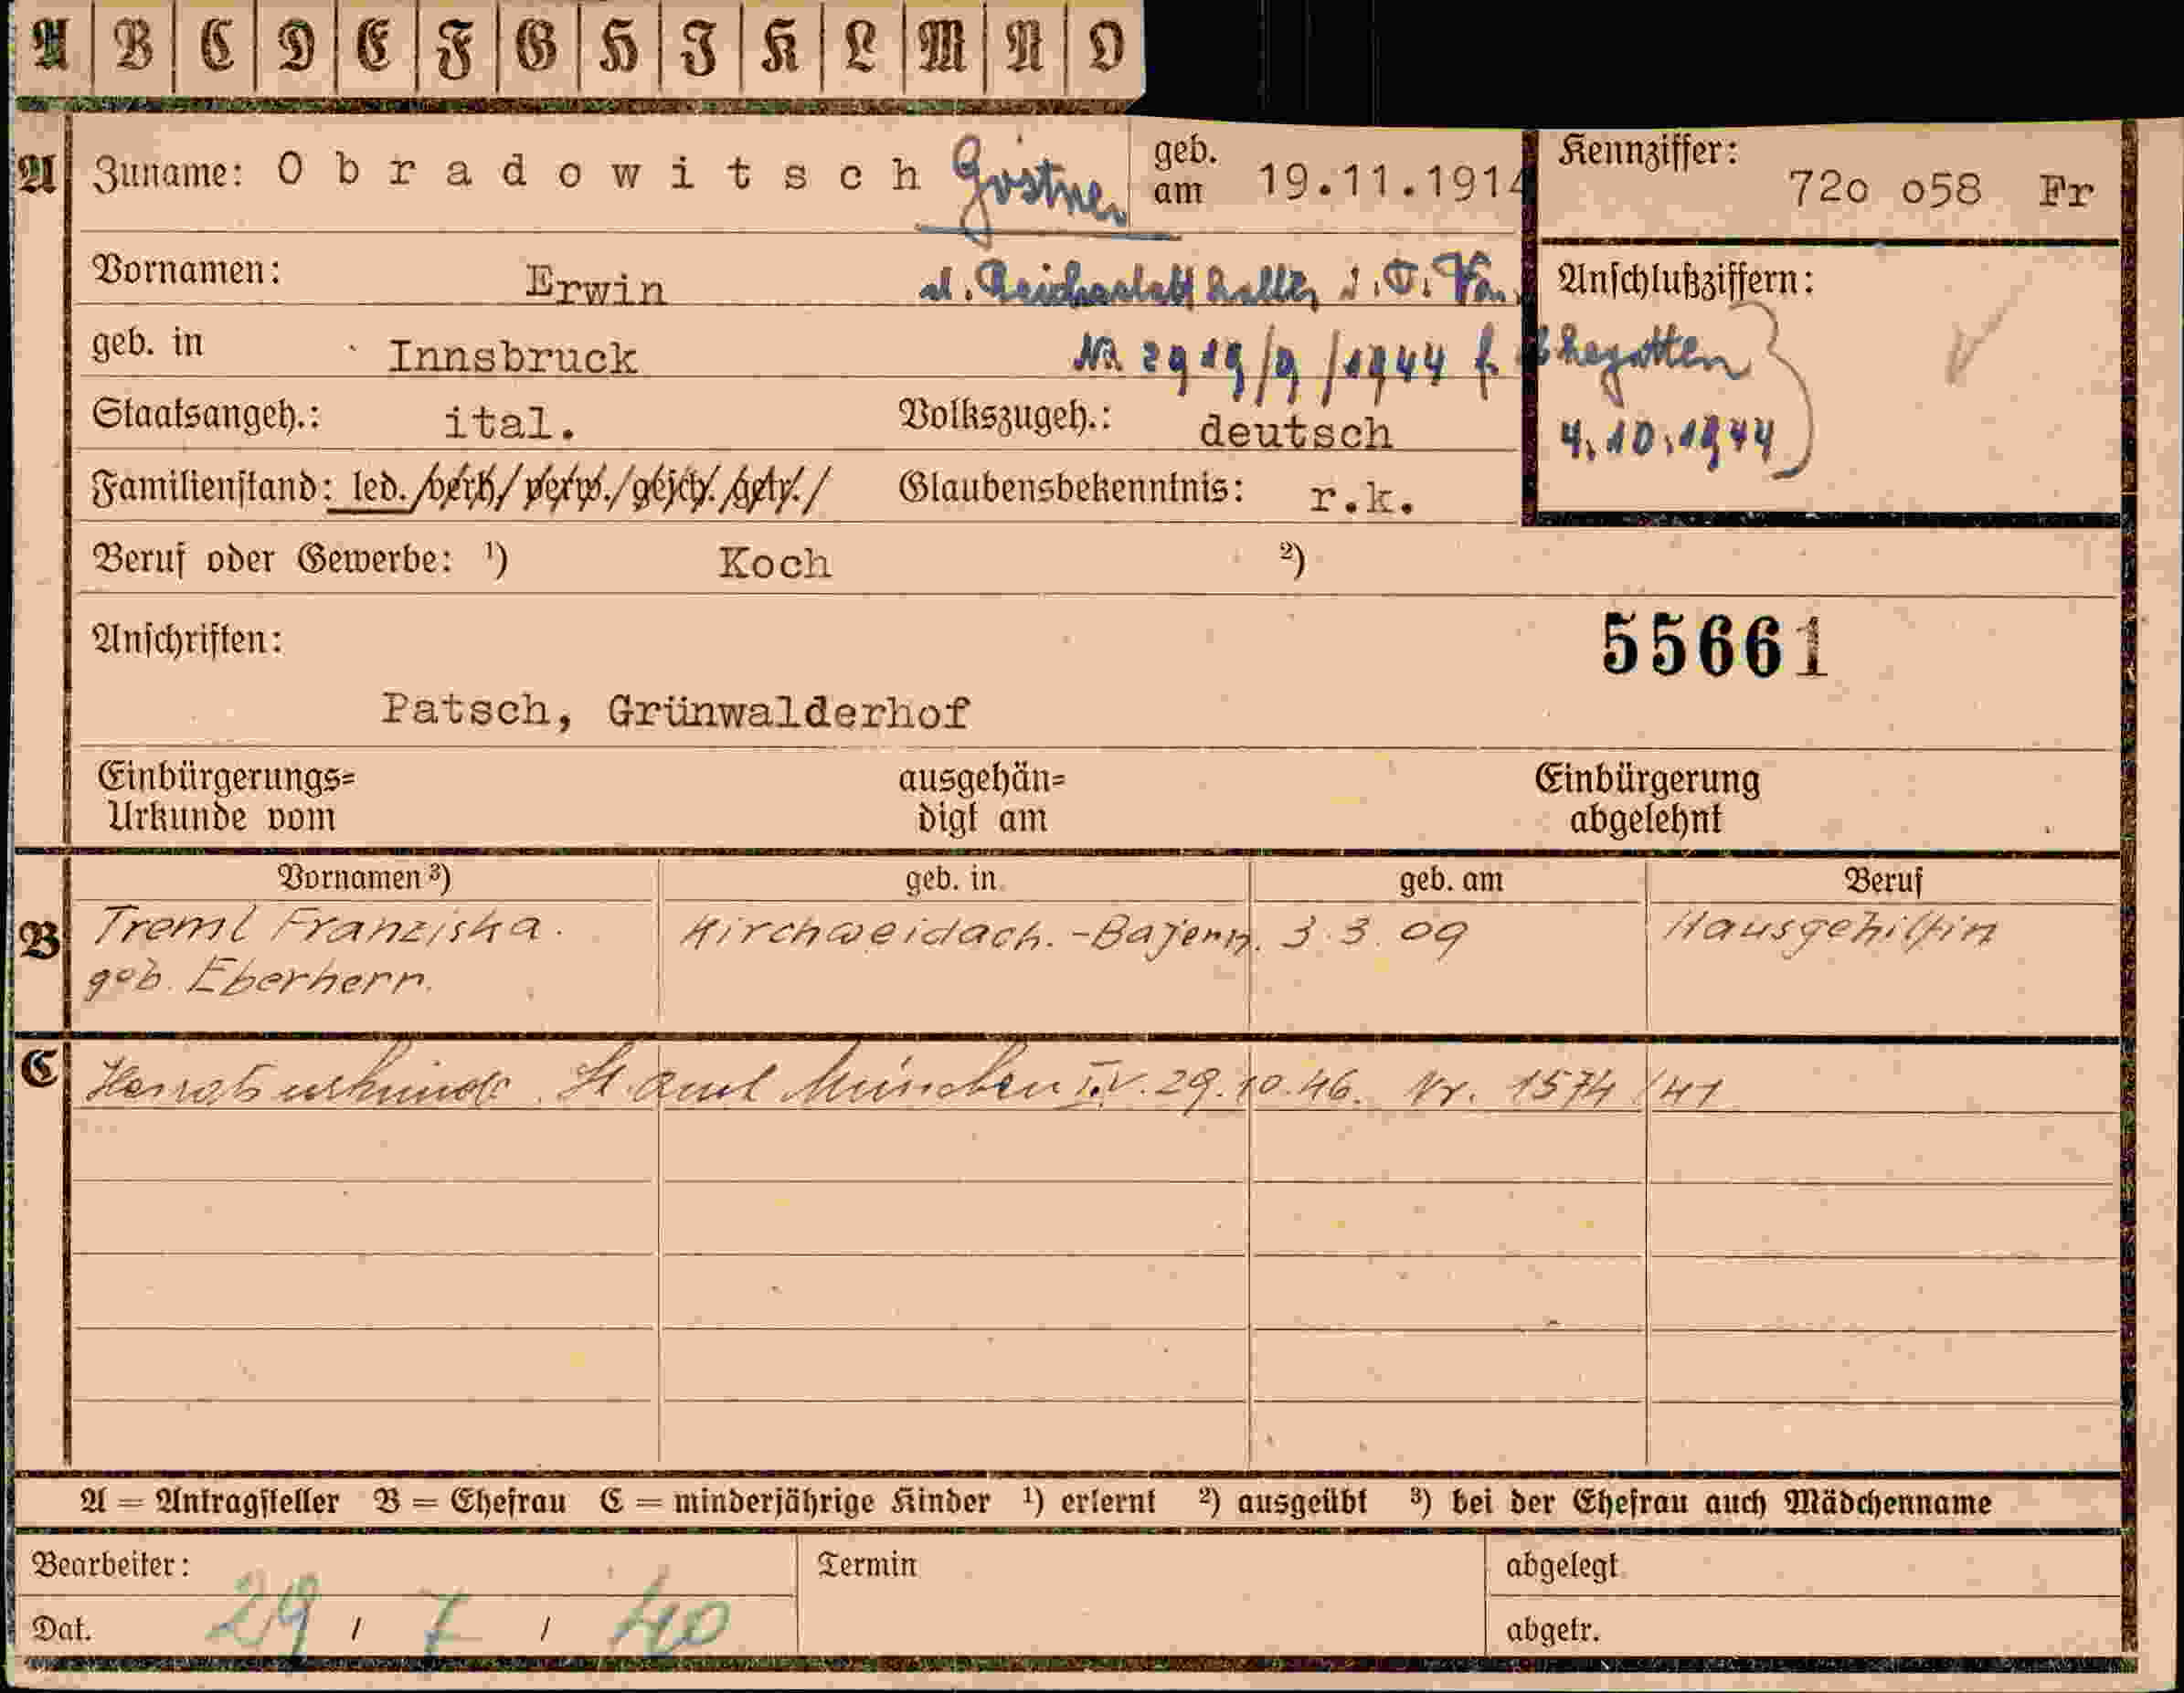 A B C D E F G H I K L M N O
A Zuname: Obradowitsch Göstner geb. am 19.11.1914 Kennziffer: 72o o58 Fr
Vornamen: Erwin lt. Reichsstatthalter i. T. Anschlußziffern:
geb. in Innsbruck 1944 f. Ehegatten
Staatsangeh.: ital. Volkszugeh.: deutsch 4.10.1944
Familienstand: led./verh/verw./gesch./getr./ Glaubensbekenntnis: r.k.
Beruf oder Gewerbe: ¹) Koch ²)
Anschriften: 55661
Patsch, Grünwalderhof
Einbürgerungs= ausgehän= Einbürgerung
Urkunde vom digt am abgelehnt
Vornamen ³) geb. in geb. am Beruf
B Treml Franziska. Kirchweidach.-Bajern. 3.3.09 Hausgehilfin
geb. Eberherr.
C Heiratsurkunde. St. amt München I. v. 29.10.46. Nr. 1574/41
A = Antragsteller B = Ehefrau C = minderjährige Kinder ¹) erlernt ²) ausgeübt ³) bei der Ehefrau auch Mädchenname
Bearbeiter: Termin abgelegt
Dat. 29 / 7 / 40 abgetr.